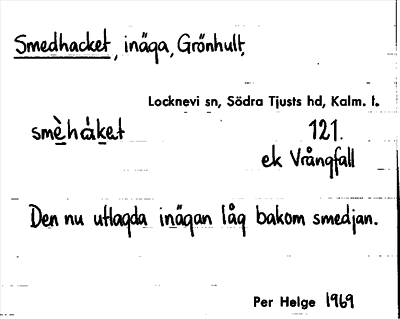 Smedhacket, inäga, Grönhult,
Locknevi sn, Södra Tjusts hd, Kalm. l.
smèhàket 121.
ek Vrångfall
Den nu utlagda inägan låg bakom smedjan.
Per Helge 1969